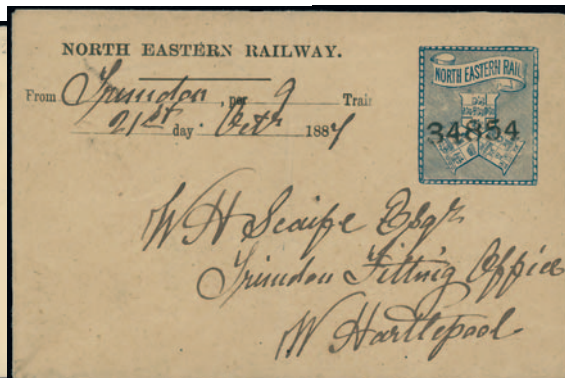 NORTH EASTERN RAILWAY.
From Trimdon, per 9 Train
21st day. Octr 1884
NORTH EASTERN RAIL
34854
W H Scaife Esqr
Trimdon Fitting Office
W Hartlepool